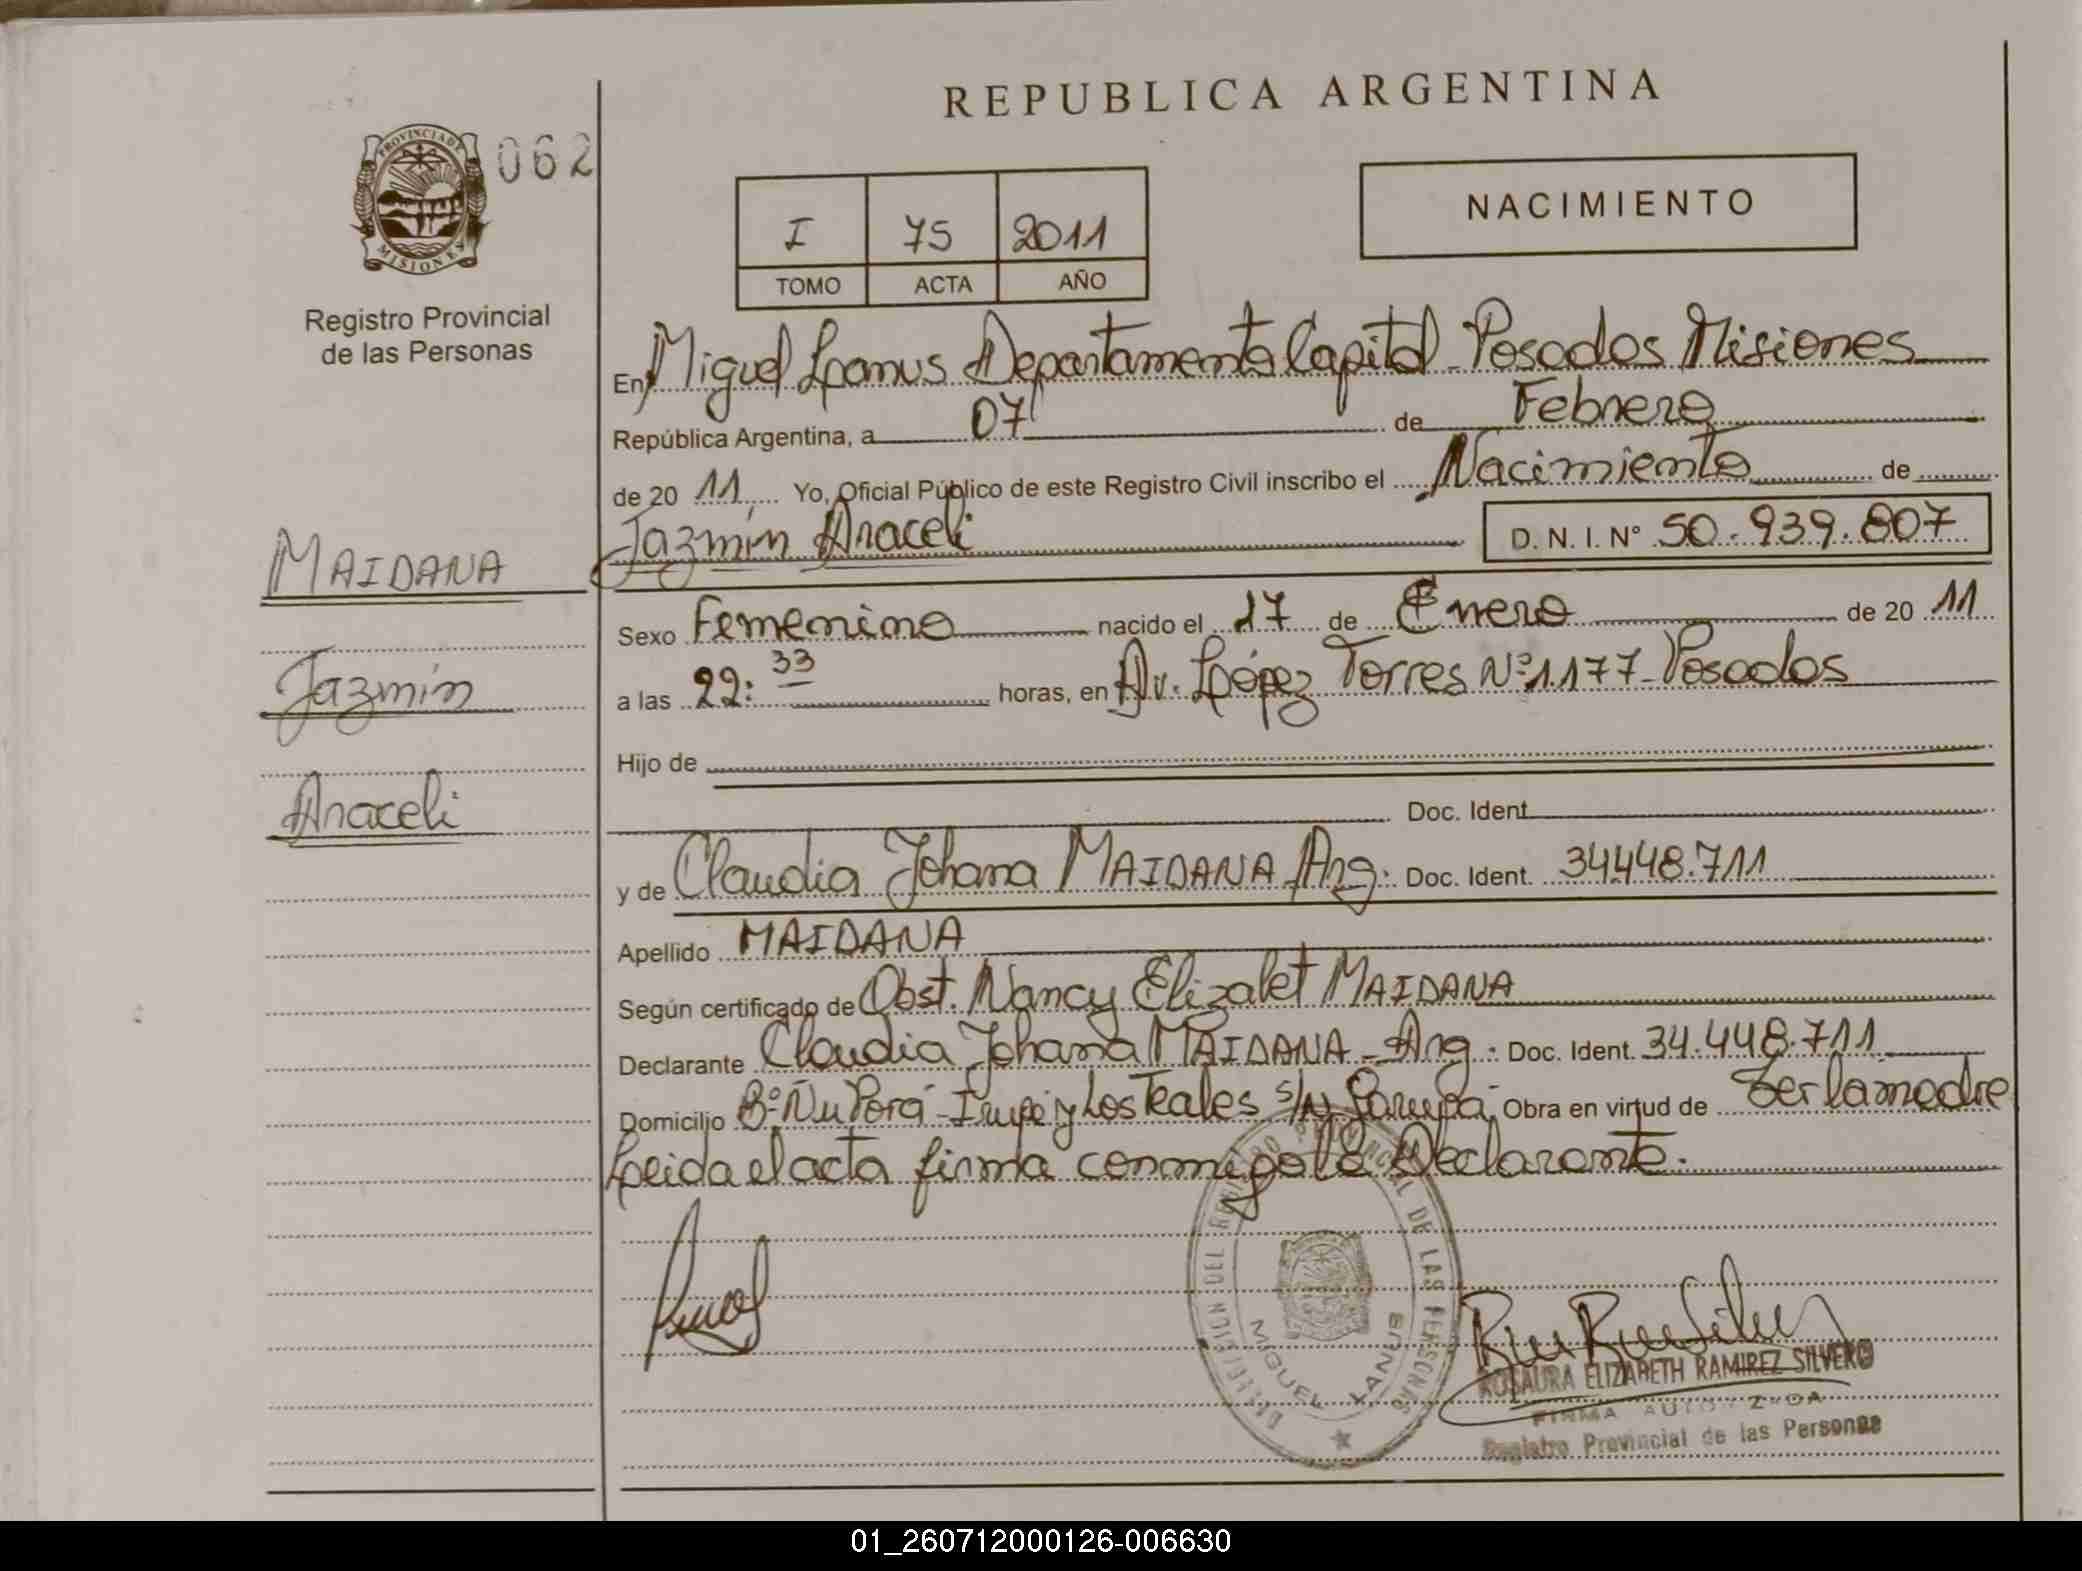 REPUBLICA ARGENTINA
PROVINCIA DE
MISIONES
062
Registro Provincial
de las Personas
I 75 2011
TOMO ACTA AÑO
NACIMIENTO
En Miguel Lanus Departamento Capital - Posadas Misiones
República Argentina, a 07 de Febrero
de 20 11 Yo, Oficial Público de este Registro Civil inscribo el Nacimiento de
Jazmín Araceli D. N. I. N° 50.939.807
MAIDANA
Jazmín
Araceli
Sexo Femenino nacido el 17 de Enero de 20 11
a las 22:33 horas, en Av. López Torres N° 1177 - Posadas
Hijo de
Doc. Ident.
y de Claudia Johana MAIDANA Arg. Doc. Ident. 34448.711
Apellido MAIDANA
Según certificado de Obst. Nancy Elizabet MAIDANA
Declarante Claudia Johana MAIDANA - Arg. Doc. Ident. 34.448.711
Domicilio B° Ñu Porá - Irupé y Los Teales s/N Garupá Obra en virtud de Ser la madre
Leida el acta firma conmigo la Declarante.
DIRECCION DEL REGISTRO PROVINCIAL DE LAS PERSONAS
MIGUEL LANUS
ROSAURA ELIZABETH RAMIREZ SILVERO
FIRMA AUTORIZADA
Registro Provincial de las Personas
01_260712000126-006630